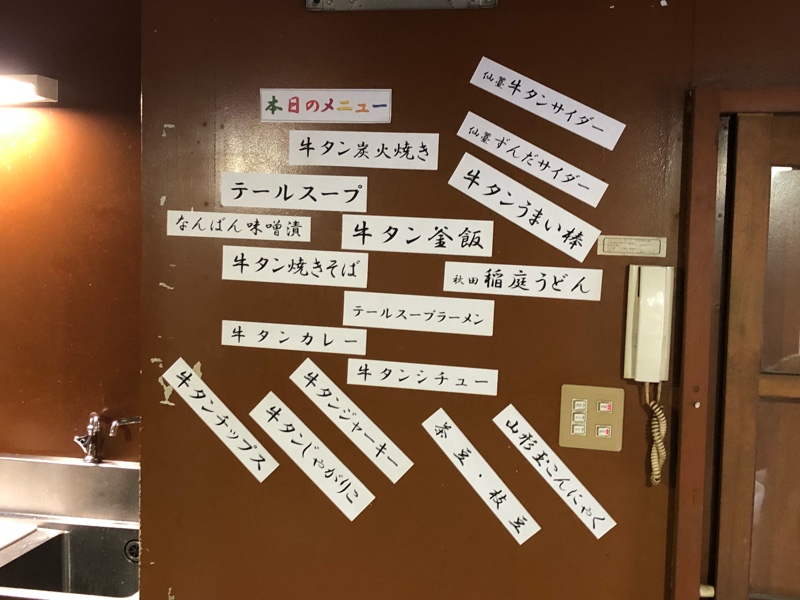 本日のメニュー
牛タン炭火焼き
テールスープ
なんばん味噌漬
牛タン釜飯
牛タン焼きそば
テールスープラーメン
牛タンカレー
牛タンシチュー
仙臺牛タンサイダー
仙臺ずんだサイダー
牛タンうまい棒
秋田稲庭うどん
牛タンチップス
牛タンじゃがりこ
牛タンジャーキー
茶豆・枝豆
山形玉こんにゃく